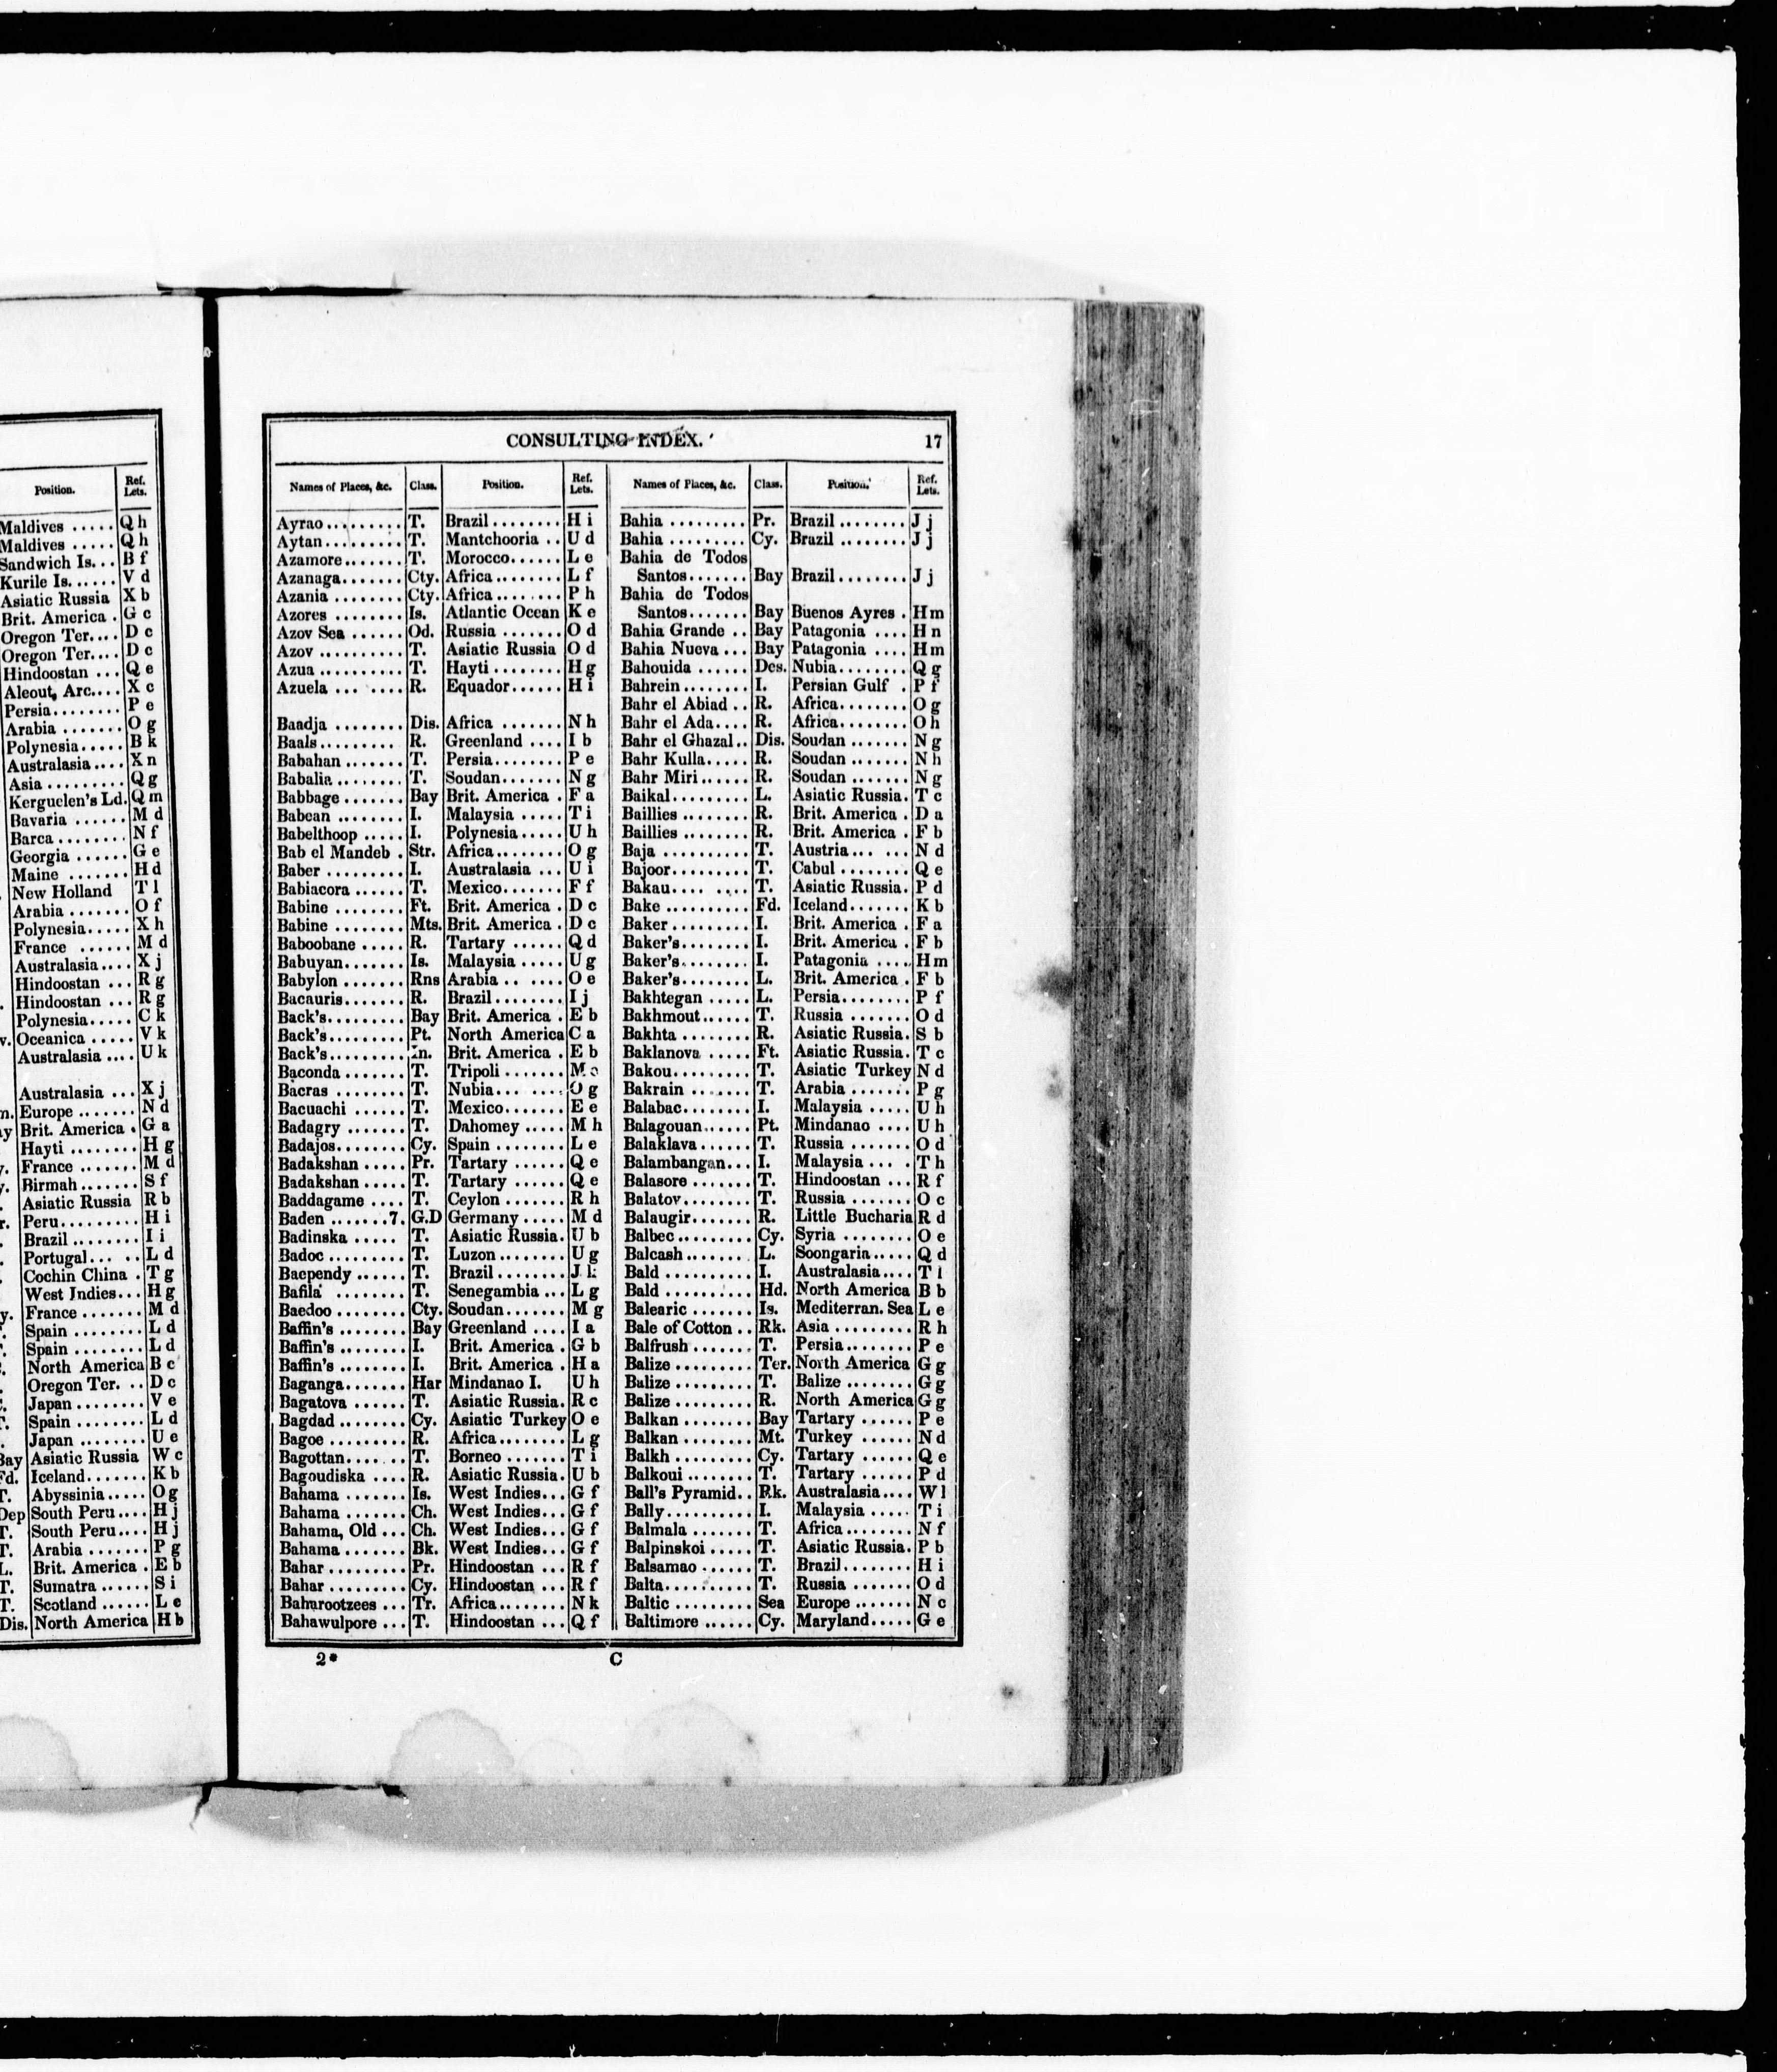 Position. Ref. Lets.
Maldives ..... Q h
Maldives ..... Q h
Sandwich Is... B f
Kurile Is...... V d
Asiatic Russia X b
Brit. America . G c
Oregon Ter.... D c
Oregon Ter.... D c
Hindoostan ... Q e
Aleout, Arc.... X c
Persia........ P e
Arabia ....... O g
Polynesia..... B k
Australasia.... X n
Asia ......... Q g
Kerguelen's Ld. Q m
Bavaria ...... M d
Barca ........ N f
Georgia ...... G e
Maine ....... H d
New Holland T l
Arabia ....... O f
Polynesia..... X h
France ...... M d
Australasia.... X j
Hindoostan ... R g
Hindoostan ... R g
Polynesia..... C k
Oceanica ..... V k
Australasia .... U k
Australasia ... X j
Europe ....... N d
Brit. America . G a
Hayti ........ H g
France ....... M d
Birmah ....... S f
Asiatic Russia R b
Peru......... H i
Brazil ........ I i
Portugal... .. L d
Cochin China . T g
West Indies... H g
France ....... M d
Spain ........ L d
Spain ........ L d
North America B c
Oregon Ter. .. D c
Japan ........ V e
Spain ........ L d
Japan ........ U e
Asiatic Russia W c
Fd. Iceland....... K b
T. Abyssinia ..... O g
Dep South Peru.... H j
T. South Peru.... H j
T. Arabia ....... P g
L. Brit. America . E b
T. Sumatra ...... S i
T. Scotland ...... L c
Dis. North America H b
CONSULTING INDEX. 17
Names of Places, &c. Class. Position. Ref. Lets.
Ayrao ......... T. Brazil ........ H i
Aytan ......... T. Mantchooria .. U d
Azamore....... T. Morocco...... L e
Azanaga....... Cty. Africa ........ L f
Azania ........ Cty. Africa ........ P h
Azores ........ Is. Atlantic Ocean K e
Azov Sea ...... Od. Russia ....... O d
Azov .......... T. Asiatic Russia O d
Azua .......... T. Hayti ........ H g
Azuela ........ R. Equador...... H i
Baadja ........ Dis. Africa ....... N h
Baals.......... R. Greenland .... I b
Babahan ....... T. Persia........ P e
Babalia ........ T. Soudan....... N g
Babbage ....... Bay Brit. America . F a
Babean ........ I. Malaysia ..... T i
Babelthoop ..... I. Polynesia..... U h
Bab el Mandeb . Str. Africa........ O g
Baber ......... I. Australasia ... U i
Babiacora ...... T. Mexico....... F f
Babine ........ Ft. Brit. America . D c
Babine ........ Mts. Brit. America . D c
Baboobane ..... R. Tartary ...... Q d
Babuyan....... Is. Malaysia ..... U g
Babylon ....... Rns Arabia ....... O e
Bacauris....... R. Brazil ........ I j
Back's......... Bay Brit. America . E b
Back's......... Pt. North America C a
Back's......... In. Brit. America . E b
Baconda ....... T. Tripoli ....... M
Bacras ........ T. Nubia........ O g
Bacuachi ...... T. Mexico....... E e
Badagry ....... T. Dahomey ..... M h
Badajos........ Cy. Spain ........ L e
Badakshan ..... Pr. Tartary ...... Q e
Badakshan ..... T. Tartary ...... Q e
Baddagame .... T. Ceylon ....... R h
Baden .......7. G.D Germany ..... M d
Badinska ..... T. Asiatic Russia. U b
Badoc ......... T. Luzon ........ U g
Baependy ...... T. Brazil ........ J k
Bafila ........ T. Senegambia ... L g
Baedoo ........ Cty. Soudan....... M g
Baffin's ........ Bay Greenland .... I a
Baffin's ........ I. Brit. America . G b
Baffin's ........ I. Brit. America . H a
Baganga....... Har Mindanao I. U h
Bagatova ...... T. Asiatic Russia. R c
Bagdad ........ Cy. Asiatic Turkey O e
Bagoe ......... R. Africa........ L g
Bagottan....... T. Borneo ....... T i
Bagoudiska .... R. Asiatic Russia. U b
Bahama ....... Is. West Indies... G f
Bahama ....... Ch. West Indies... G f
Bahama, Old ... Ch. West Indies... G f
Bahama ....... Bk. West Indies... G f
Bahar ......... Pr. Hindoostan ... R f
Bahar ......... Cy. Hindoostan ... R f
Baharootzees ... Tr. Africa........ N k
Bahawulpore ... T. Hindoostan ... Q f
Names of Places, &c. Class. Position. Ref. Lets.
Bahia ......... Pr. Brazil ........ J j
Bahia ......... Cy. Brazil ........ J j
Bahia de Todos
Santos....... Bay Brazil ........ J j
Bahia de Todos
Santos....... Bay Buenos Ayres . H m
Bahia Grande .. Bay Patagonia .... H n
Bahia Nueva ... Bay Patagonia .... H m
Bahouida ...... Des. Nubia........ Q g
Bahrein........ I. Persian Gulf . P f
Bahr el Abiad .. R. Africa........ O g
Bahr el Ada.... R. Africa........ O h
Bahr el Ghazal.. Dis. Soudan ....... N g
Bahr Kulla..... R. Soudan ....... N h
Bahr Miri ...... R. Soudan ....... N g
Baikal......... L. Asiatic Russia. T c
Baillies ........ R. Brit. America . D a
Baillies ........ R. Brit. America . F b
Baja .......... T. Austria... ... N d
Bajoor......... T. Cabul ........ Q e
Bakau.... .... T. Asiatic Russia. P d
Bake .......... Fd. Iceland....... K b
Baker ......... I. Brit. America . F a
Baker's........ I. Brit. America . F b
Baker's........ I. Patagonia .... H m
Baker's........ L. Brit. America . F b
Bakhtegan ..... L. Persia........ P f
Bakhmout...... T. Russia ....... O d
Bakhta ........ R. Asiatic Russia. S b
Baklanova ..... Ft. Asiatic Russia. T c
Bakou......... T. Asiatic Turkey N d
Bakrain ....... T. Arabia ....... P g
Balabac........ I. Malaysia ..... U h
Balagouan...... Pt. Mindanao .... U h
Balaklava...... T. Russia ....... O d
Balambangan... I. Malaysia ... . T h
Balasore ....... T. Hindoostan ... R f
Balatov........ T. Russia ....... O c
Balaugir....... R. Little Bucharia R d
Balbec......... Cy. Syria ........ O e
Balcash........ L. Soongaria..... Q d
Bald .......... I. Australasia.... T l
Bald .......... Hd. North America B b
Balearic ....... Is. Mediterran. Sea L e
Bale of Cotton .. Rk. Asia ......... R h
Balfrush ....... T. Persia........ P e
Balize ......... Ter. North America G g
Balize ......... T. Balize ........ G g
Balize ......... R. North America G g
Balkan ........ Bay Tartary ...... P e
Balkan ........ Mt. Turkey ...... N d
Balkh ......... Cy. Tartary ...... Q e
Balkoui ........ T. Tartary ...... P d
Ball's Pyramid.. Rk. Australasia.... W l
Bally.......... I. Malaysia ..... T i
Balmala ....... T. Africa........ N f
Balpinskoi ..... T. Asiatic Russia. P b
Balsamao ...... T. Brazil........ H i
Balta.......... T. Russia ....... O d
Baltic ......... Sea Europe ....... N c
Baltimore ...... Cy. Maryland..... G e
2* C